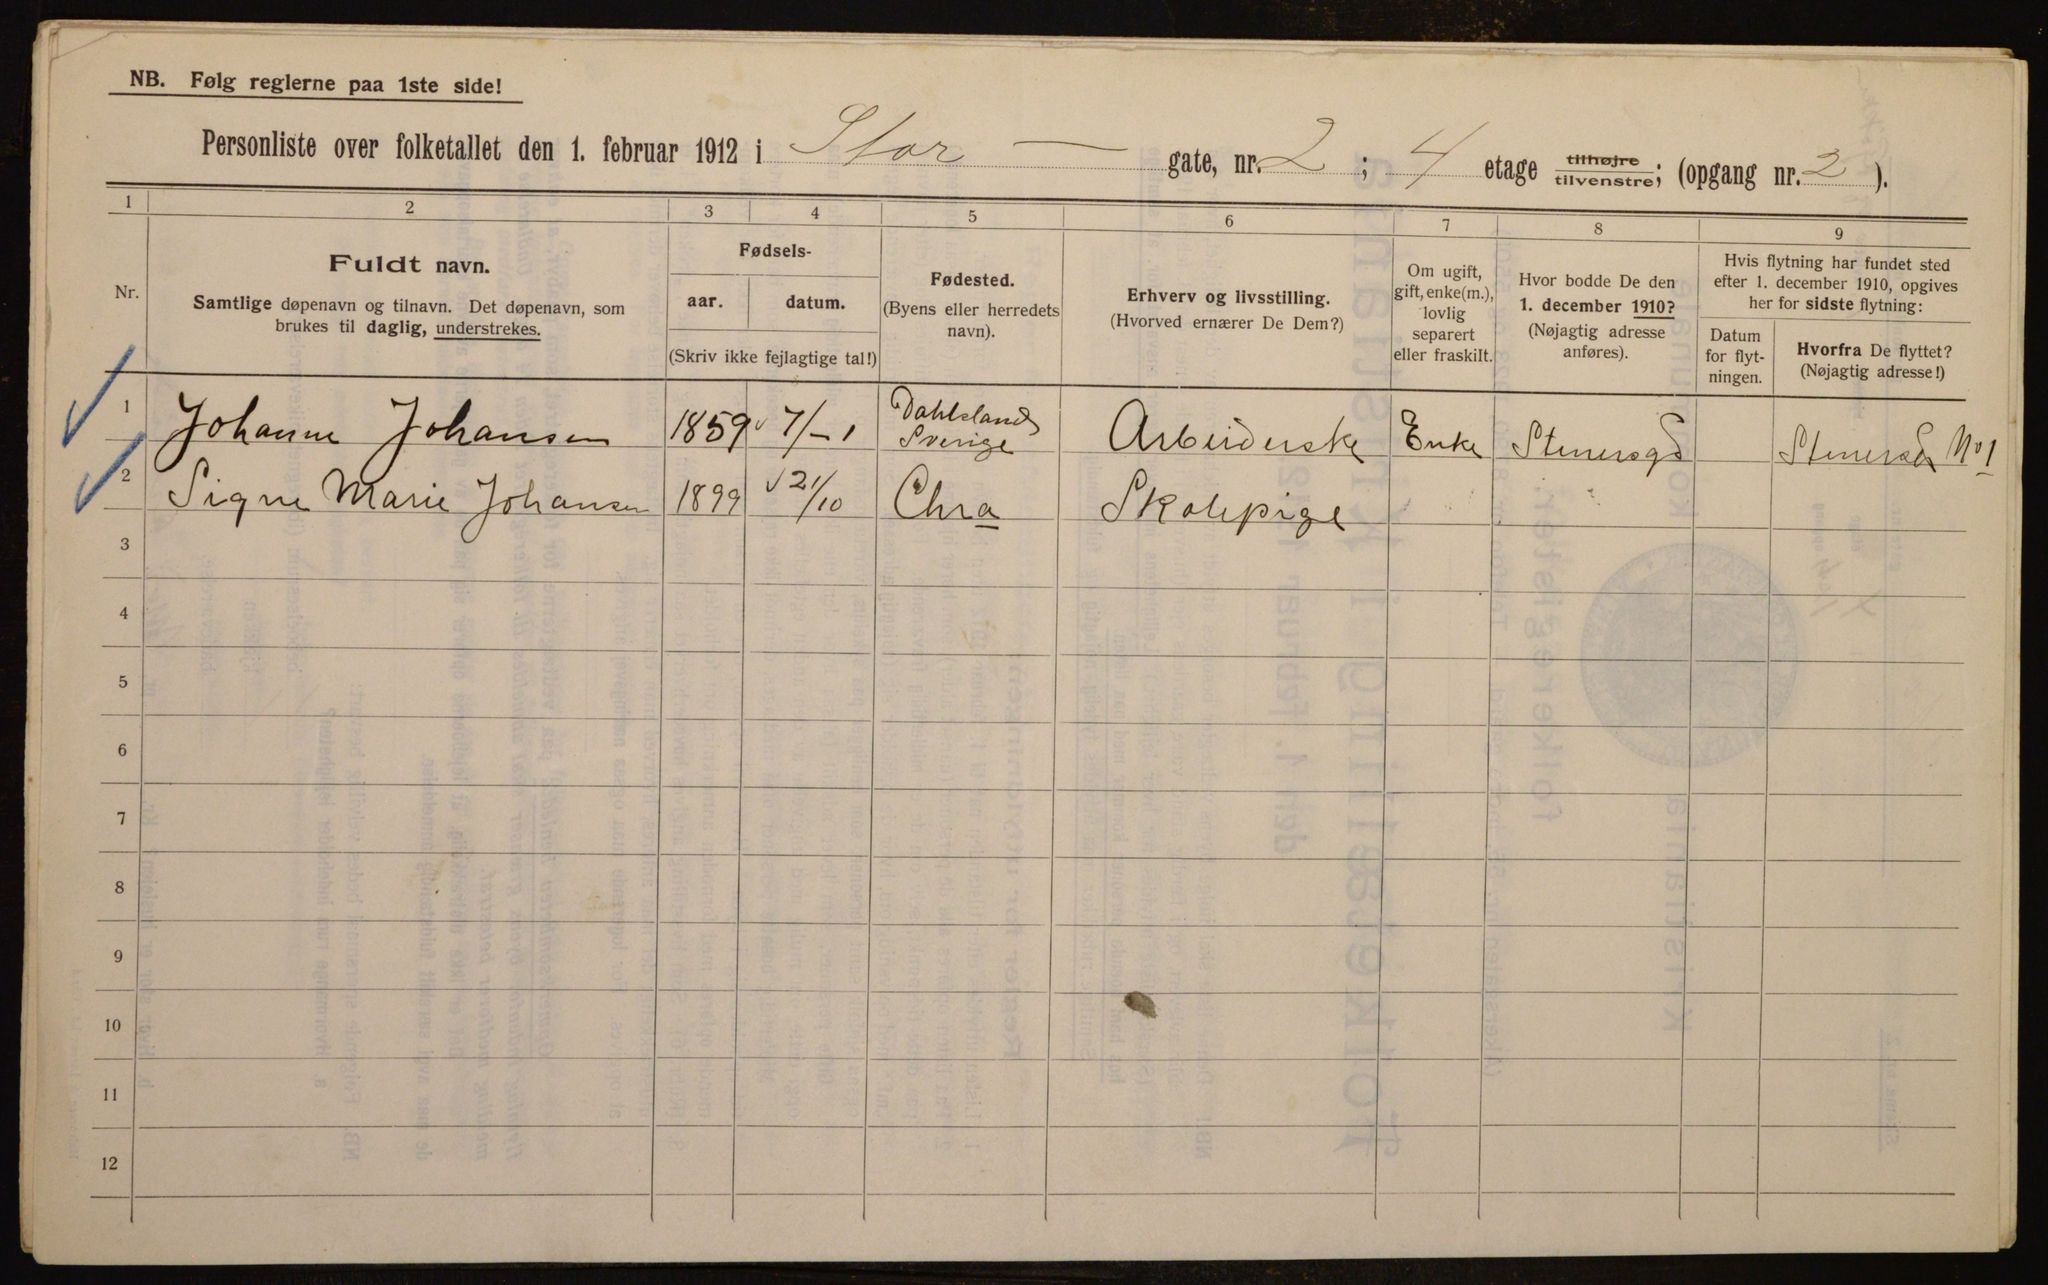 NB. Følg reglerne paa 1ste side!
Personliste over folketallet den 1. februar 1912 i Stor — gate, nr. 2 ; 4 etage tilhøjre tilvenstre; (opgang nr. 2 ).
1 2 3 4 5 6 7 8 9
Nr.
Fuldt navn.
Samtlige døpenavn og tilnavn. Det døpenavn, som
brukes til daglig, understrekes.
Fødsels-
aar. datum.
(Skriv ikke fejlagtige tal!)
Fødested.
(Byens eller herredets
navn).
Erhverv og livsstilling.
(Hvorved ernærer De Dem?)
Om ugift,
gift, enke(m.),
lovlig
separert
eller fraskilt.
Hvor bodde De den
1. december 1910?
(Nøjagtig adresse
anføres).
Hvis flytning har fundet sted
efter 1. december 1910, opgives
her for sidste flytning:
Datum
for flyt-
ningen.
Hvorfra De flyttet?
(Nøjagtig adresse!)
1 Johanne Johansen 1859 7/-1 Dahlsland Sverige Arbeiderske Enke Stenersgd Stenersgd No 1
2 Signe Marie Johansen 1899 21/10 Chra Skolepige
3
4
5
6
7
8
9
10
11
12